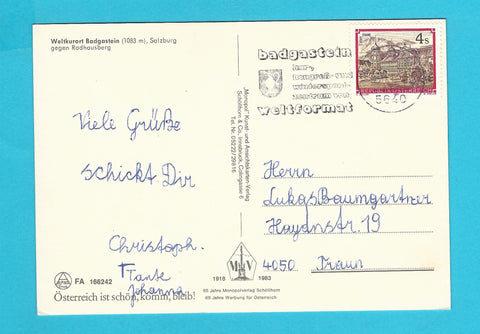 Weltkurort Badgastein (1083 m), Salzburg
gegen Radhausberg
Viele Grüße
schickt Dir
Christoph.
Tante
Johanna
FA 166242
Österreich ist schön, komm, bleib!
"Monopol" Kunst- und Ansichtskarten-Verlag
Schöllhorn & Co., Innsbruck, Colingasse 6
Tel. Nr. 05222/29816
1918 1983
65 Jahre Monopolverlag Schöllhorn
65 Jahre Werbung für Österreich
badgastein
kur-,
kongreß- und
wintersport-
zentrum von
weltformat
5640
4 s
REPUBLIK ÖSTERREICH
Herrn
Lukas Baumgartner
Haydnstr. 19
4050 Traun